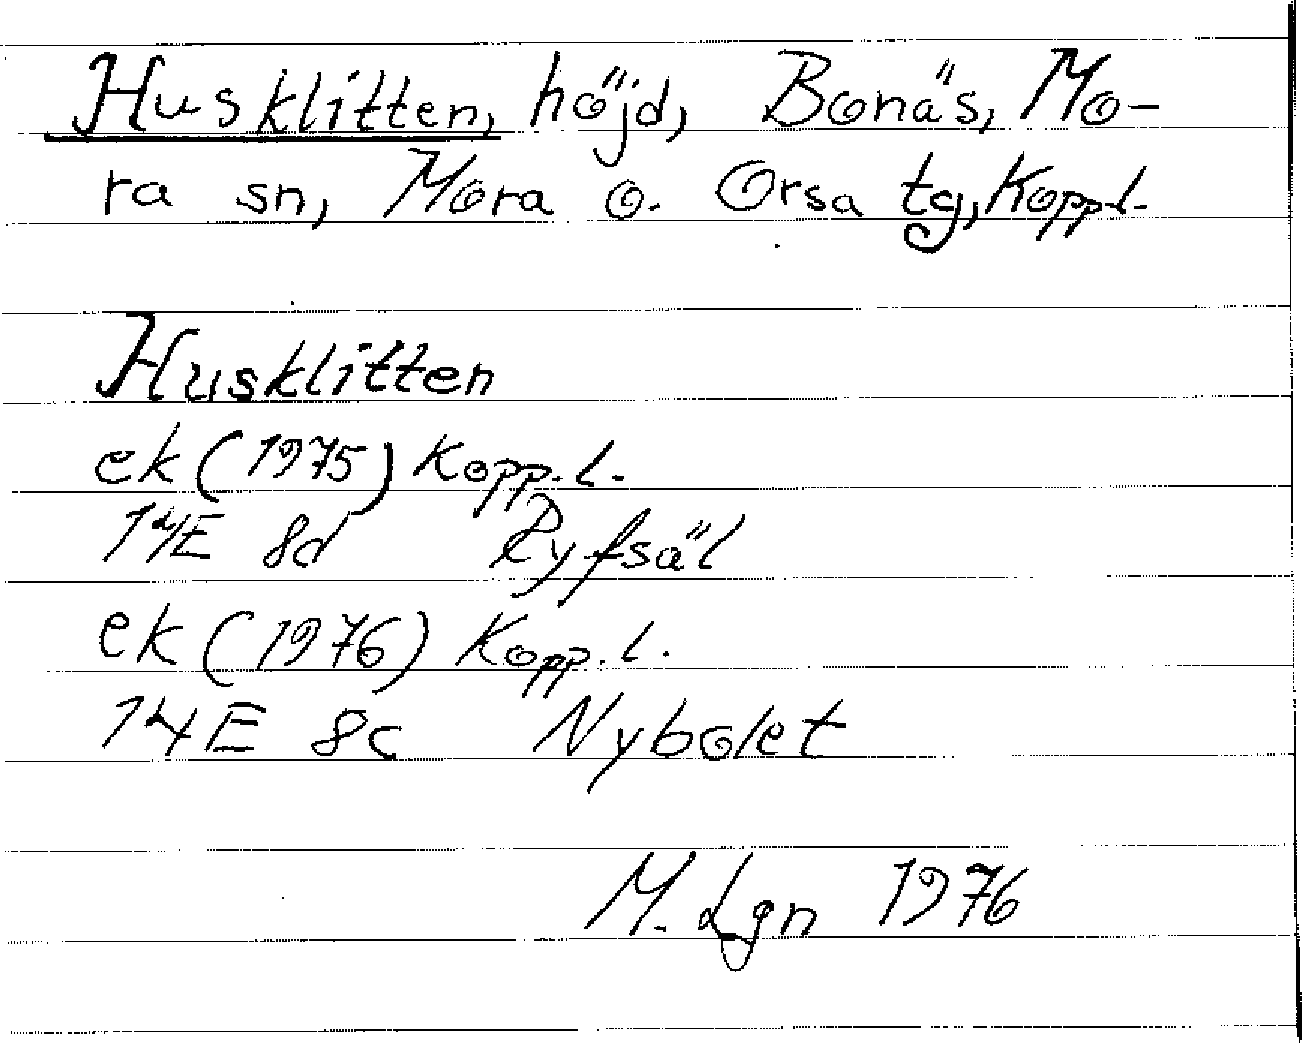 Husklitten, höjd, Bonäs, Mo-
ra sn, Mora o. Orsa tg, Kopp.l.
Husklitten
ek (1975) Kopp. l.
14E 8d Ryfsäl
ek (1976) Kopp. l.
14E 8c Nybolet
M. Lgn 1976